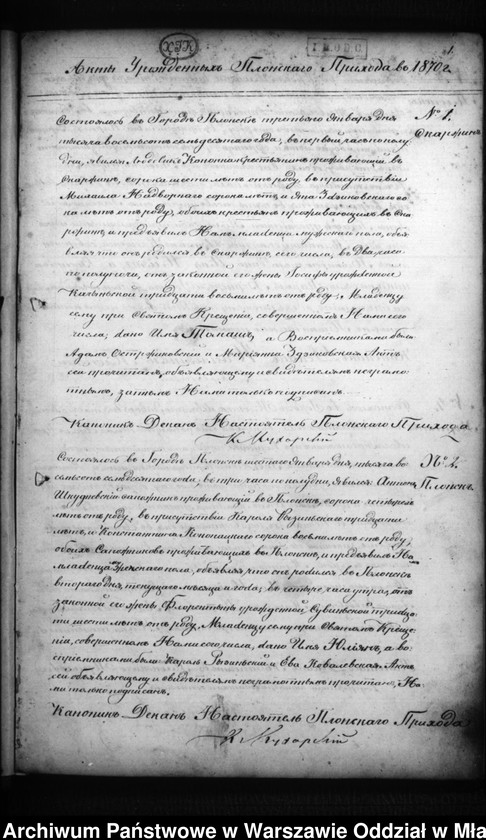 1
Акты Урожденныхъ Плонскаго Прихода въ 1870 г.
№ 1.
Скаржинъ
Состоялось въ Городѣ Плонскѣ третьяго Января дня
тысяча восемьсотъ семьдесятаго года, въ первый часъ по полу
дни, явился Людовикъ крестьянинъ проживающій въ
Скаржинѣ, сорока шести лѣтъ отъ роду, въ присутствіи
Михаила Надворнаго сорока лѣтъ, и Яна со
рока лѣтъ отъ роду, обоихъ крестьянъ проживающихъ въ Ска
ржинѣ, и предъявилъ Намъ младенца мужескаго пола, объя
вляя что онъ родился въ Скаржинѣ, сего числа, въ два часа
по полуночи, отъ законной его жены Іозефы урожденной
тридцати восьми лѣтъ отъ роду. Младенцу
сему при Святомъ Крещеніи, совершенномъ Нами сего
числа, дано Имя Томашъ, а Воспріемниками были
Адамъ и Маріянна Актъ
сей прочитанъ, объявляющему и свидѣтелямъ неграмо
тнымъ, за тѣмъ Нами только подписанъ.
Каноникъ Деканъ Настоятель Плонскаго Прихода
К Кухарскій
№ 2.
Плонскъ
Состоялось въ Городѣ Плонскѣ шестаго Января дня, тысяча во
семьсотъ семьдесятаго года, въ три часа по полудни, явился Антонъ
сапожникъ проживающій въ Плонскѣ, сорока четырехъ
лѣтъ отъ роду, въ присутствіи Кароля тридцати
лѣтъ, и Константина сорока восьми лѣтъ отъ роду,
обоихъ Сапожниковъ проживающихъ въ Плонскѣ, и предъявилъ На
младенца пола, объявляя что онъ родился въ Плонскѣ
втораго дня, текущаго мѣсяца и года, въ четыре часа утра, отъ
законной его жены Флорентины урожденной тридца
ти шести лѣтъ отъ роду. Младенцу сему при Святомъ Креще
ніи, совершенномъ Нами сего числа, дано Имя Юліянъ, а во
спріемниками были Кароль и Ева Ковалевская. Актъ
сей объявляющему и свидѣтелямъ неграмотнымъ прочитанъ, На
ми только подписанъ.
Каноникъ Деканъ Настоятель Плонскаго Прихода
К Кухарскій
Archiwum Państwowe w Warszawie Oddział w Mła